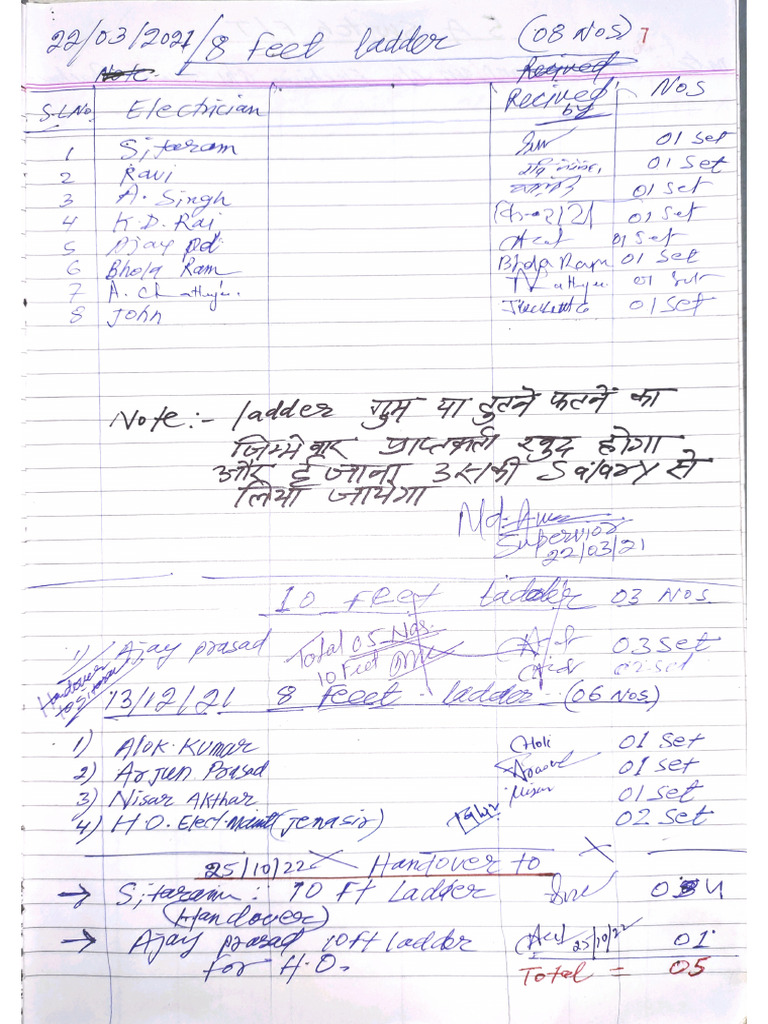 22/03/2021/8 feet ladder (08 Nos) 7
Note. Recived
S.L No. Electrician Recived by Nos
1 Sitaram 01 Set
2 Ravi 01 Set
3 A. Singh 01 Set
4 K.D. Rai 01 Set
5 Ajay pd. 01 Set
6 Bhola Ram Bhola Ram 01 Set
7 A. 01 Set
8 John 01 Set
Note:- ladder गुम या टुटने फटने का
जिम्मेवार प्राप्तकर्ता खुद होगा
और उसकी Salary से
लिया जायेगा
Md.
Supervior
22/03/21
10 feet ladder 03 Nos.
1) Ajay prasad Total 05 Nos. 03 Set
10 Feet 02 Set
Handover to Sitaram
13/12/21 8 feeet ladder (06 Nos)
1) Alok Kumar 01 Set
2) Arjun Prasad 01 Set
3) Nisar Akthar Nisar 01 Set
4) H.O. Elect. Maint (Jenasir) 02 Set
25/10/22 Handover to
→ Sitaram: 10 Ft Ladder 04
(Handover)
→ Ajay prasad 10ft ladder 25/10/22 01
for H.O. Total = 05